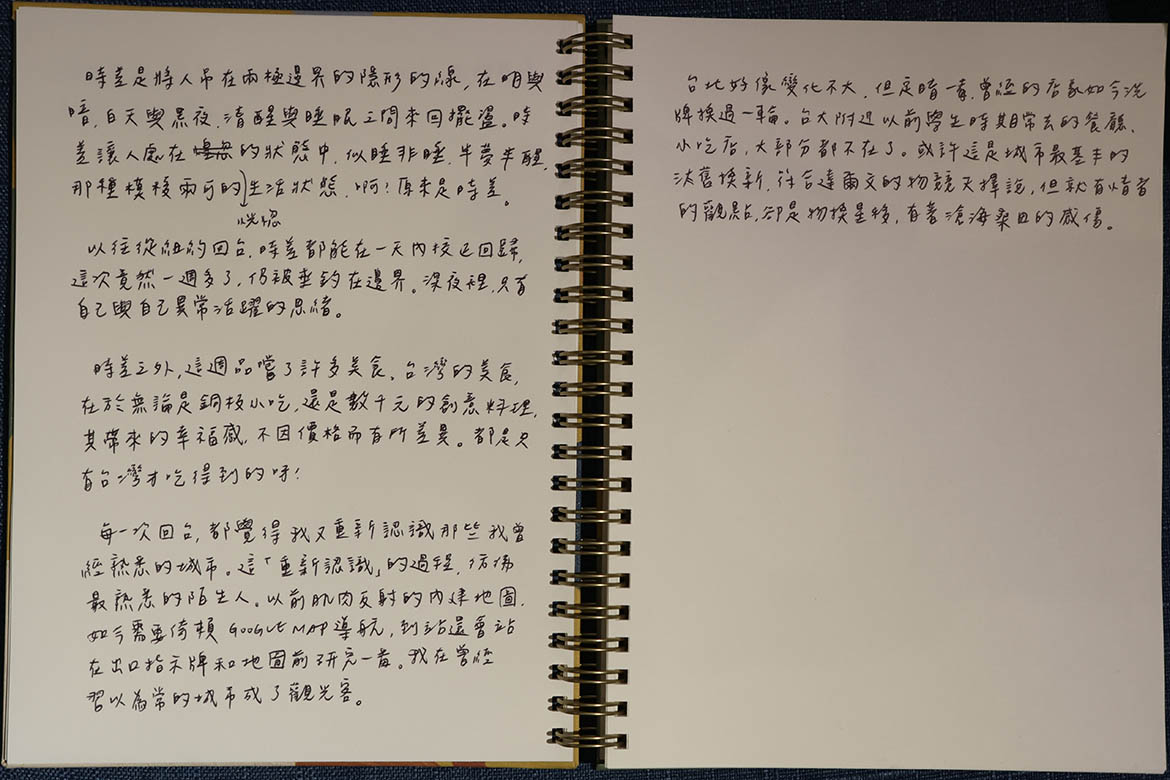 時差是將人吊在兩極邊界的隱形的線，在明與
暗，白天與黑夜，清醒與睡眠之間來回擺盪。時
差讓人處在的狀態中，似睡非睡，半夢半醒，
那種模稜兩可的生活狀態，啊！原來是時差。
恍惚
以往從紐約回台，時差都能在一天內校正回歸，
這次竟然一週多了，仍被垂釣在邊界。深夜裡，只有
自己與自己異常活躍的思緒。
時差之外，這週品嚐了許多美食。台灣的美食，
在於無論是銅板小吃，還是數千元的創意料理，
其帶來的幸福感，不因價格而有所差異。都是只
有台灣才吃得到的呀！
每一次回台，都覺得我又重新認識那些我曾
經熟悉的城市。這「重新認識」的過程，彷彿
最熟悉的陌生人。以前肌肉反射的內建地圖，
如今需要倚賴 GOOGLE MAP 導航，到站還會站
在出口指示牌和地圖前研究一番。我在曾經
習以為常的城市成了觀光客。
台北好像變化不大，但定睛一看，曾經的店家如今洗
牌換過一輪。台大附近以前學生時期常去的餐廳、
小吃店，大部分都不在了。或許這是城市最基本的
汰舊換新，符合達爾文的物競天擇說，但就有情者
的觀點，卻是物換星移，有著滄海桑田的感傷。